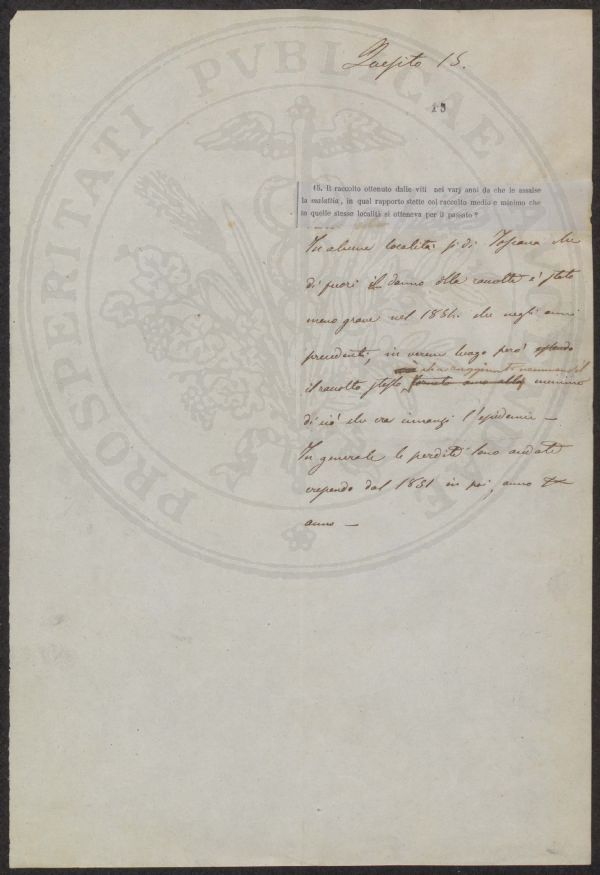 Quesito 15.
15
15. Il raccolto ottenuto dalle viti nei varj anni da che le assalse
la malattia, in qual rapporto stette col raccolto medio e minimo che
in quelle stesse località si otteneva per il passato?
In alcune località sì di Toscana che
di fuori il danno alle raccolte è stato
meno grave nel 1854. che negli anni
precedenti, in verun luogo però essendo
è raggiunto nemmeno il
il raccolto stesso tornato uno alla minimo
di ciò che era innanzi l'epidemia —
In generale le perdite sono andate
crescendo dal 1851 in poi, anno
anno —
PROSPERITATI PVBLICAE